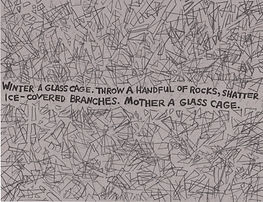 WINTER A GLASS CAGE. THROW A HANDFUL OF ROCKS, SHATTER
ICE-COVERED BRANCHES. MOTHER A GLASS CAGE.